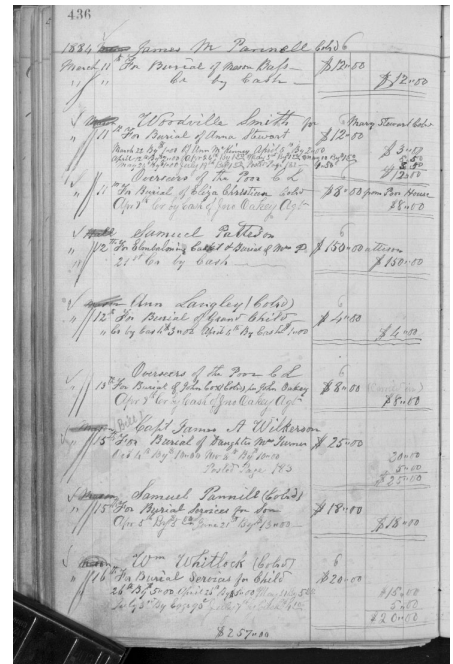 436
1884 James M Pannell Colod 6
March 11th For Burial of Mason Dass $12.00
" " Cr by Cash $12.00
Woodville Smith for Mary Stewart Colod
" 11th For Burial of Anna Stewart $12.00
$3.00
Overseers of the Poor C L 6
" 11th For Burial of Eliza Christian Colod $8.00 from Poor House
Apr 8th Cr by Cash of Jno Oakey Agt $8.00
Samuel Patteson 6
" 12th For Embalming Casket & Burial of Mrs P. $150.00
" 21st Cr by Cash $150.00
Ann Langley (Colod) 6
" 12th For Burial of Grand Child $4.00
" Cr by Cash $3.00 April 4th By Cash $1.00 $4.00
Overseers of the Poor C L 6
" 13th For Burial of John Cox (Colod) for John Oakey $8.00
Apr 8th Cr by Cash of Jno Oakey Agt $8.00
Capt James A Wilkerson
" 15th For Burial of Daughter Mrs Turner $25.00
Oct 4th By $10.00 Nov 6th By 10.00 20.00
Posted Page 183 5.00
$25.00
Samuel Pannill (Colod)
" 15th For Burial Services for Son $18.00
Apr 5th By $5.00 June 21st By $13.00 $18.00
Wm Whitlock (Colod) 6
" 16th For Burial Services for Child $20.00
26th By $5.00 April 26th By $5.00 May 10 By 5.00 $15.00
5.00
$20.00
$257.00